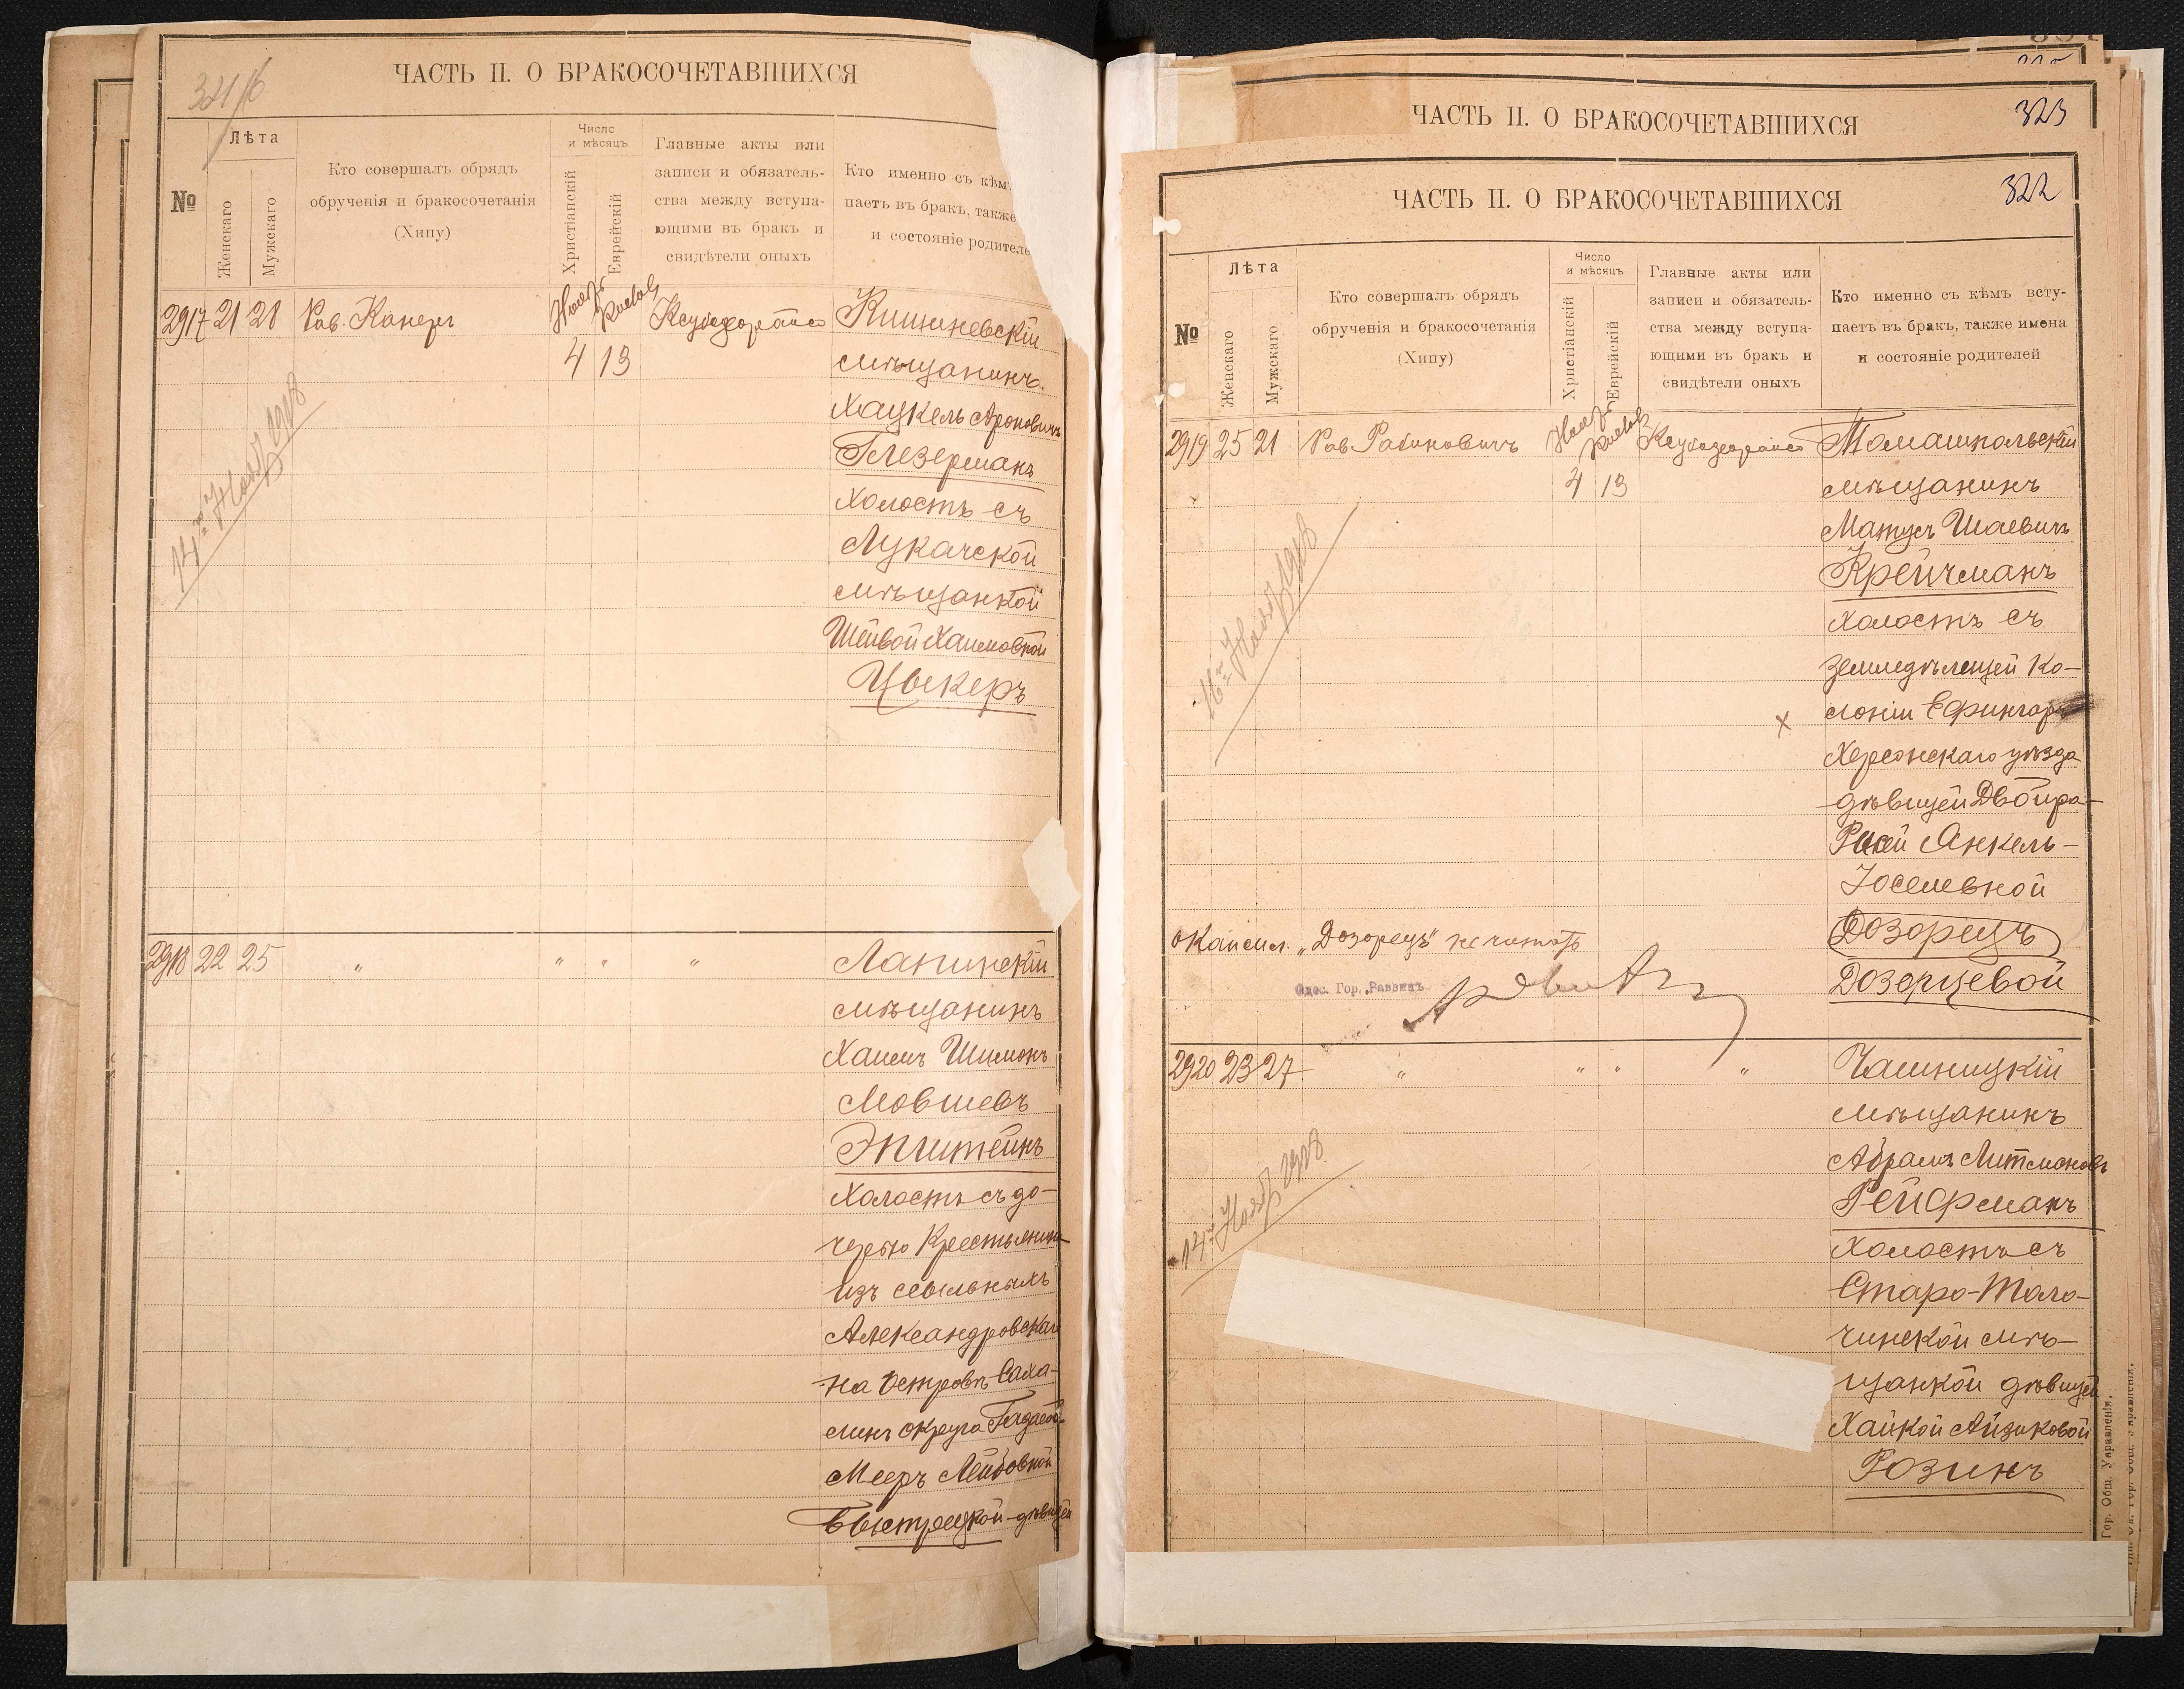 321/б
ЧАСТЬ II. О БРАКОСОЧЕТАВШИХСЯ
№
Лѣта
Женскаго
Мужскаго
Кто совершалъ обрядъ
обрученія и бракосочетанія
(Хипу)
Число
и мѣсяцъ
Христіанскій
Еврейскій
Главные акты или
записи и обязатель-
ства между вступа-
ющими въ бракъ и
свидѣтели оныхъ
Кто именно съ кѣм
паетъ въ бракъ, также
и состояніе родителе
2917 21 28 Рав. Канеръ
4 13
Кишиневскій
мѣщанинъ.
Хацкель Ароновичъ
Глезерманъ
холостъ съ
Лукачской
мѣщанкой
Шейвой Хаимовной
Цыкеръ
14го Нояб 1918
2918 22 25 " " " "
Мѣщанинъ
Хаимъ Шимонъ
Мовшевъ
Эпштейнъ
Холостъ съ до-
черью Крестьянина
изъ ссыльныхъ
Александровскаго
на островѣ Саха-
линъ округа
Мееръ Лейбовной
Быстрецкой-дѣвицей
ЧАСТЬ II. О БРАКОСОЧЕТАВШИХСЯ
323
ЧАСТЬ II. О БРАКОСОЧЕТАВШИХСЯ
322
№
Лѣта
Женскаго
Мужскаго
Кто совершалъ обрядъ
обрученія и бракосочетанія
(Хипу)
Число
и мѣсяцъ
Христіанскій
Еврейскій
Главные акты или
записи и обязатель-
ства между вступа-
ющими въ бракъ и
свидѣтели оныхъ
Кто именно съ кѣмъ всту-
паетъ въ бракъ, также имена
и состояніе родителей
2919 25 21 Рав Рабиновичъ
4 13
Томашпольскій
мѣщанинъ
Матусъ Шаевичъ
Крейчманъ
холостъ съ
землед​ѣлицей Ко-
лоніи Ефингаръ
Херсонскаго уѣзда
дѣвицей Двойра-
Рисей Янкель-
Іоселевной
Дозорецъ
Дозорцевой
16го Нояб 1918
"Дозорецъ" не читать
Одес. Гор. Раввинъ
2920 23 27 " " " "
Чашницкій
мѣщанинъ
Абрамъ Литмановъ
Рейфманъ
холостъ съ
Старо-Толо-
чинской мѣ-
щанкой дѣвицей
Хайкой Айзиковой
Розинъ
14го Нояб 1918
Гор. Общ. Управленія.